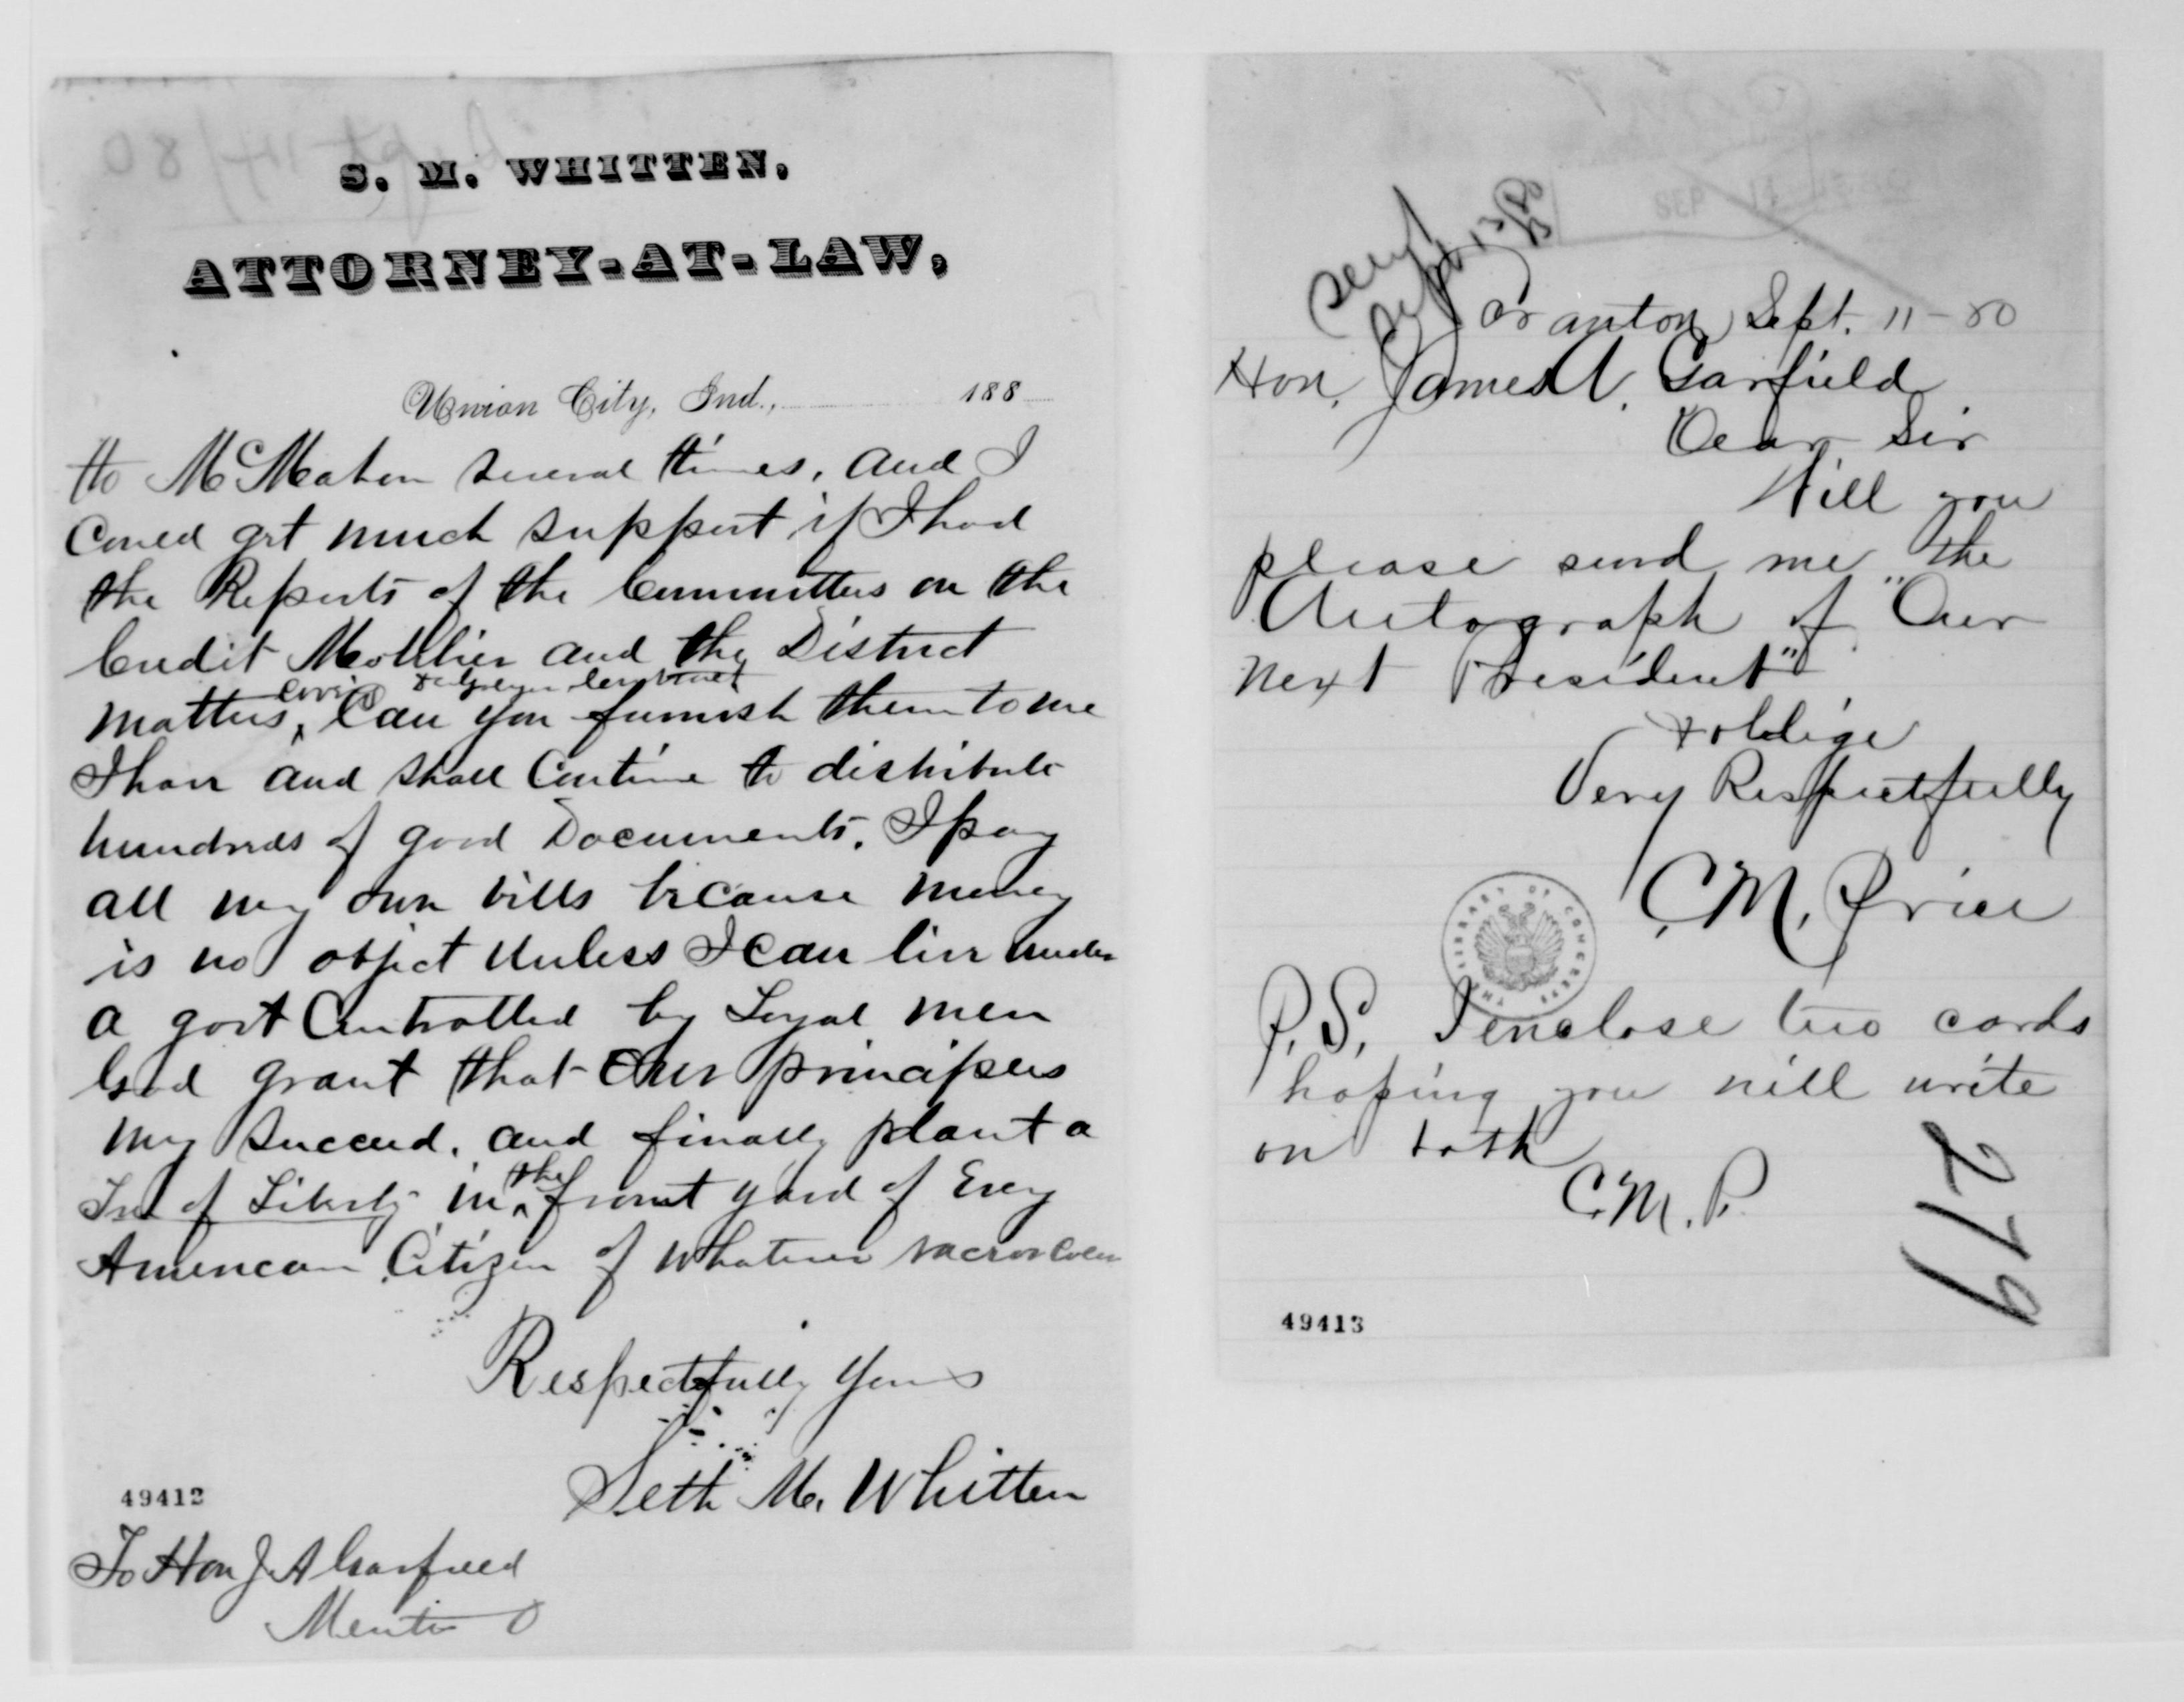 S. M. WHITTEN,
ATTORNEY-AT-LAW,
Union City, Ind., 188
to McMahon several times, and I
Coued get much support if I had
the Reports of the Committees on the
Credit Mobilier and the District
matters, Can you furnish them to me
I have and shall Continue to distribute
hundreds of good Documents. I pay
all my own bills because money
is no object Unless I Can live under
a govt Controlled by Loyal men
God grant that Our principles
my succeed. and finally plant a
Tree of Liberty in the front yard of Every
American Citizen of Whatever race or Color
Respectfully Yours
Seth M. Whitten
49412
To Hon J. A Garfield
Mentor O
SEP 14 1880
Sept 13/80
Scranton, Sept. 11-80
Hon. James A. Garfield
Dear Sir
Will you
please send me the
Autograph of "Our
next President"
& oblige
Very Respectfully
C.M. Price
THE LIBRARY OF CONGRESS
P.S. I enclose two cards
hoping you will write
on both
C.M.P.
279
49413